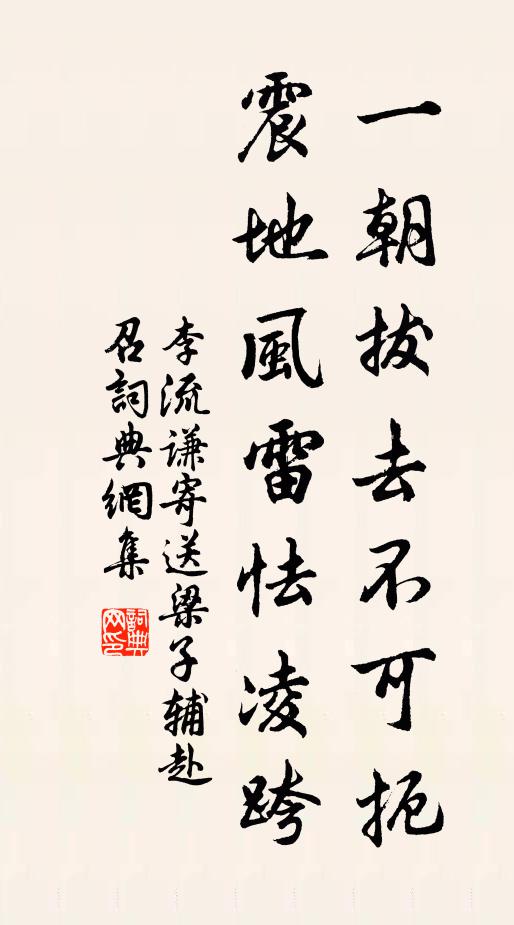 一朝拔去不可扼
震地風雷怯凌跨
李流谦寄送梁子辅赴
召詞典網集
詞典網印